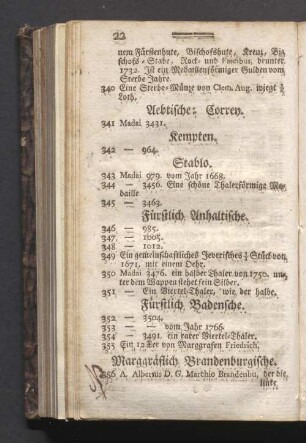 22
nem Fürstenhute, Bischofshute, Kreuz, Bi-
schofs-Stabe, Rock- und Fascibus, drunter
1732. Ist ein Medaillenförmiger Gulden vom
Sterbe Jahre.
340 Eine Sterbe-Münze von Clem. Aug. wiegt
Loth.
Aebtische: Correy.
341 Madai 3431.
Kempten.
342 — 964.
Stablo.
343 Madai 979. vom Jahr 1668.
344 — 3456. Eine schöne Thalerförmige Me-
daille
345 — 3463.
Fürstlich Anhaltische.
346 — 985.
347 — 1005.
348 — 1012.
349 Ein gemeinschaftliches Jeverisches Stück von
1671. mit einem Dehr.
350 Madai 3476. ein halber Thaler von 1750. un-
ter dem Wappen stehet fein Silber.
351 — Ein Viertel-Thaler, wie der halbe.
Fürstlich Badensche.
352 — 3504.
353 — — vom Jahr 1766.
354 — 3491. ein rarer Viertel-Thaler.
355 Ein 12 Ker von Marggrafen Friedrich.
Marggräflich Brandenburgische.
356 A. Albertus D. G. Marchio Brandenbu, der die
linke